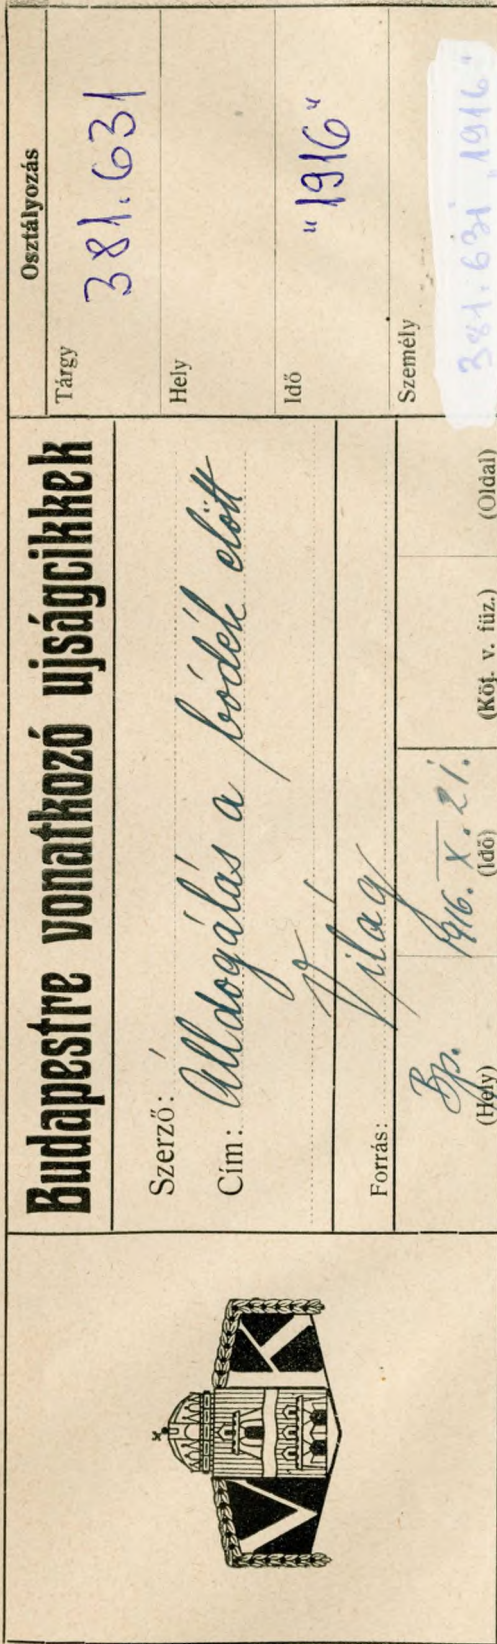 V K
Budapestre vonatkozó ujságcikkek
Szerző:
Cím: Álldogálás a bódék előtt
Forrás: Világ
Bp. 1916. X. 21.
(Hely) (Idő) (Köt. v. füz.) (Oldal)
Osztályozás
Tárgy
381.631
Hely
Idő
"1916"
Személy
381.631 "1916"